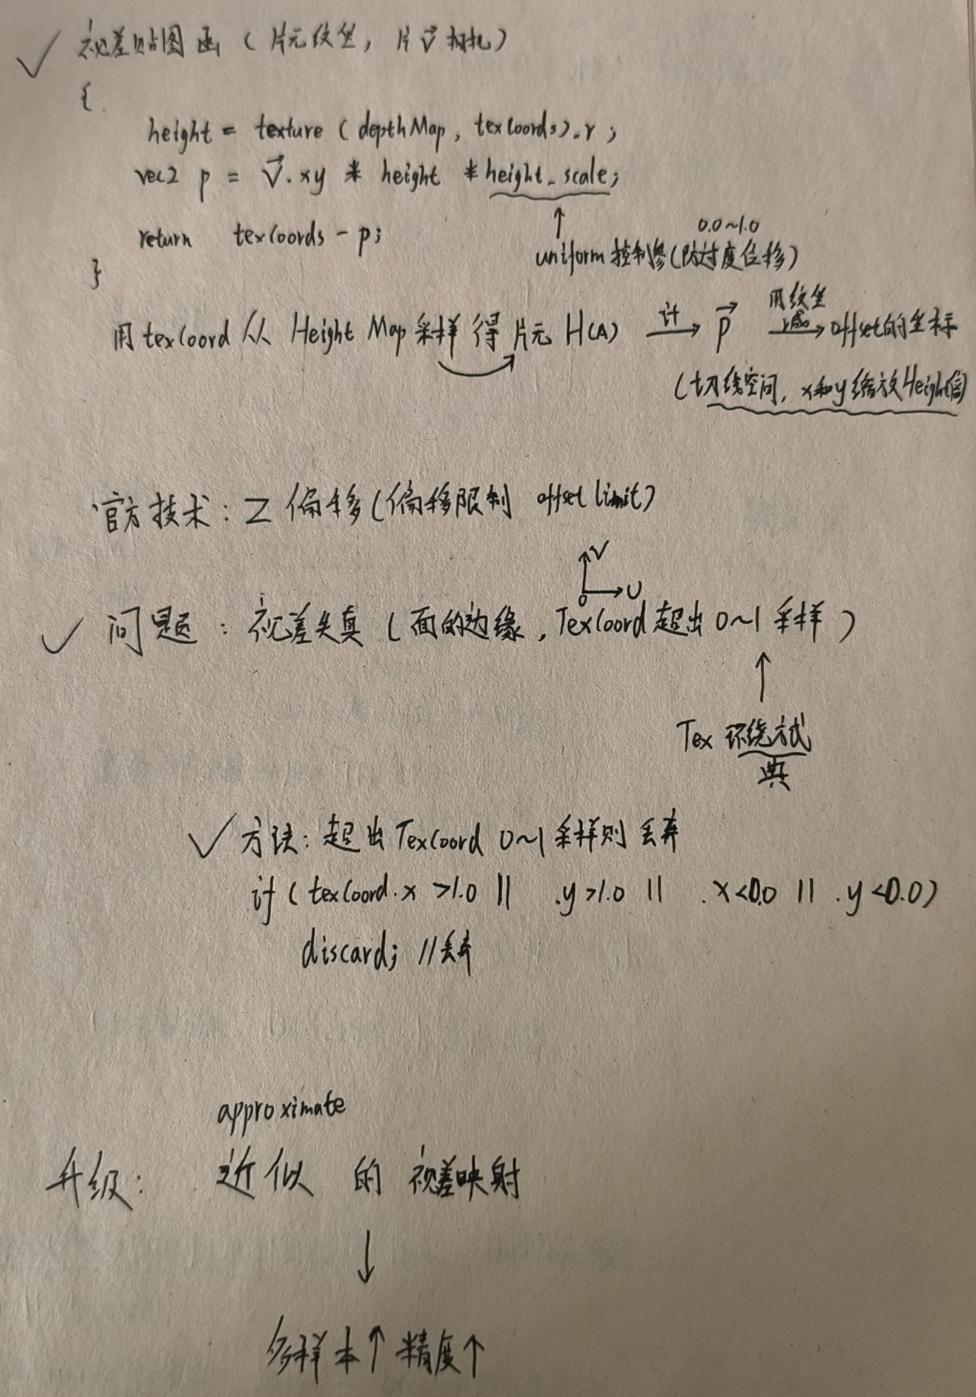 ✓ 视差贴图函 ( 片元纹坐, 片V⃗ 切线 )
{
height = texture ( depthMap, texCoords ).r ;
vec2 p = V⃗.xy * height * height_scale;
return texCoords - p;
↑ 0.0~1.0
uniform 控制 (防过度位移)
}
用 texCoord 从 Height Map 采样 得 片元 H(A) 计→ P⃗ 用纹坐减→ offset的坐标
(切线空间, x和y缩放Height值)
官方技术: Z 偏移 (偏移限制 offset limit)
V
0 U
✓ 问题: 视差失真 ( 面的边缘, TexCoord 超出 0~1 采样 )
↑
Tex 环绕方式
典
✓ 方法: 超出 TexCoord 0~1 采样则 丢弃
if ( texCoord.x >1.0 || .y >1.0 || .x <0.0 || .y <0.0)
discard; //丢弃
approximate
升级: 近似 的 视差映射
↓
多样本↑ 精度↑